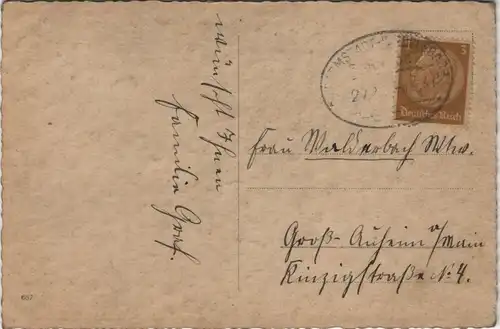 wünscht Ihnen
Familie Graf.
3
Deutsches Reich
Frau Walderbach Wtw.
Groß-Auheim a/Main
Kinzigstraße No 4.